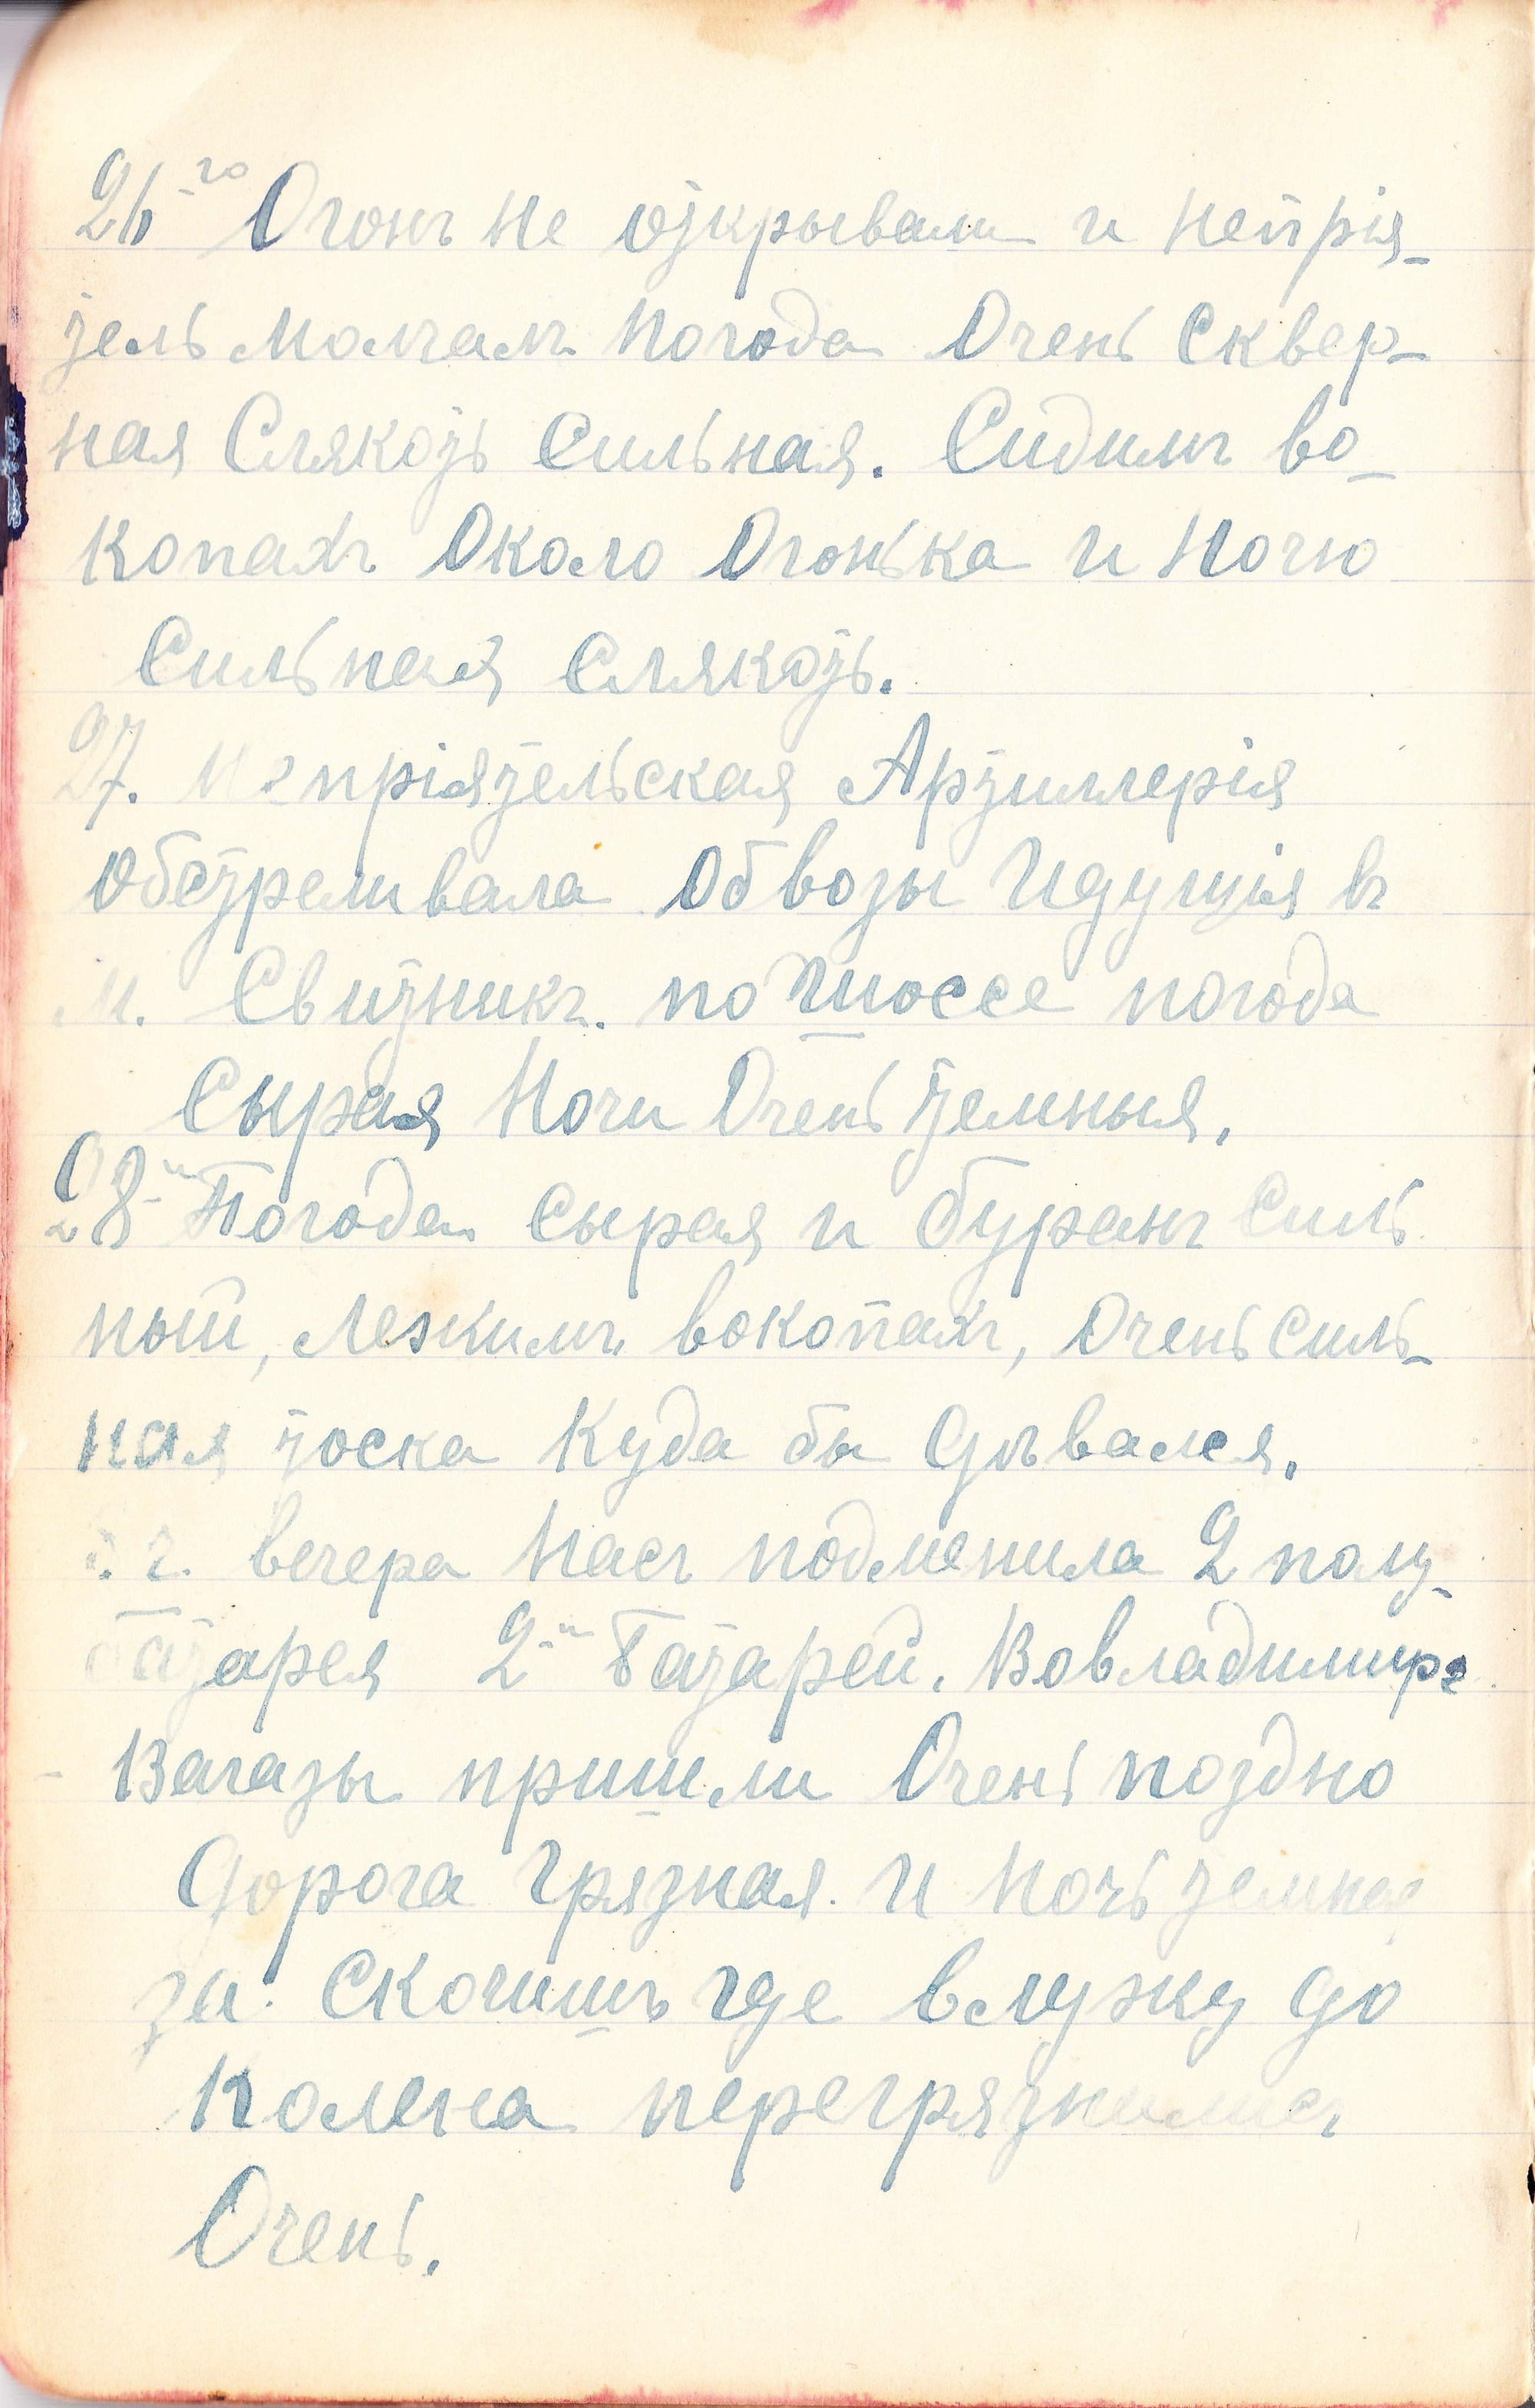 26-го Огонъ не открывали и непрія-
тель молчалъ погода Очень сквер-
ная Слякоть Сильная. Сидимъ во-
копахъ Около Огонька и Ночю
Сильная слякоть.
27. Непріятельская Артиллерія
обстреливала обвозы Идущія въ
м. Свитникъ. по шоссе погода
Сырая Ночи Очень темныя.
28-й Погода сырая и буранъ Силь
ный, лежимъ вокопахъ, Очень силь-
ная тоска Куда бы дѣвался.
ч. вечера насъ подменила 2 полу-
батарея 2-й батареи. Вовладимире
Вагазы пришли Очень поздно
дорога грязная. И ночь темная
за. Скочишь где влужу до
колена перегрязнились
Очень.